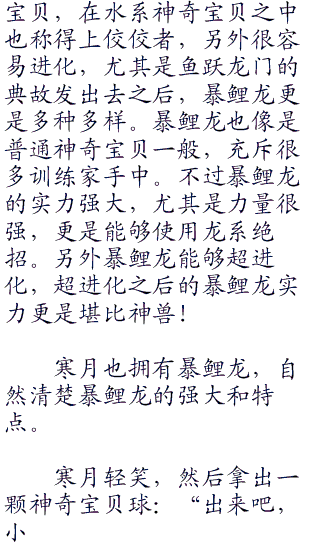 宝贝，在水系神奇宝贝之中
也称得上佼佼者，另外很容
易进化，尤其是鱼跃龙门的
典故发出去之后，暴鲤龙更
是多种多样。暴鲤龙也像是
普通神奇宝贝一般，充斥很
多训练家手中。不过暴鲤龙
的实力强大，尤其是力量很
强，更是能够使用龙系绝
招。另外暴鲤龙能够超进
化，超进化之后的暴鲤龙实
力更是堪比神兽！
寒月也拥有暴鲤龙，自
然清楚暴鲤龙的强大和特
点。
寒月轻笑，然后拿出一
颗神奇宝贝球：“出来吧，
小